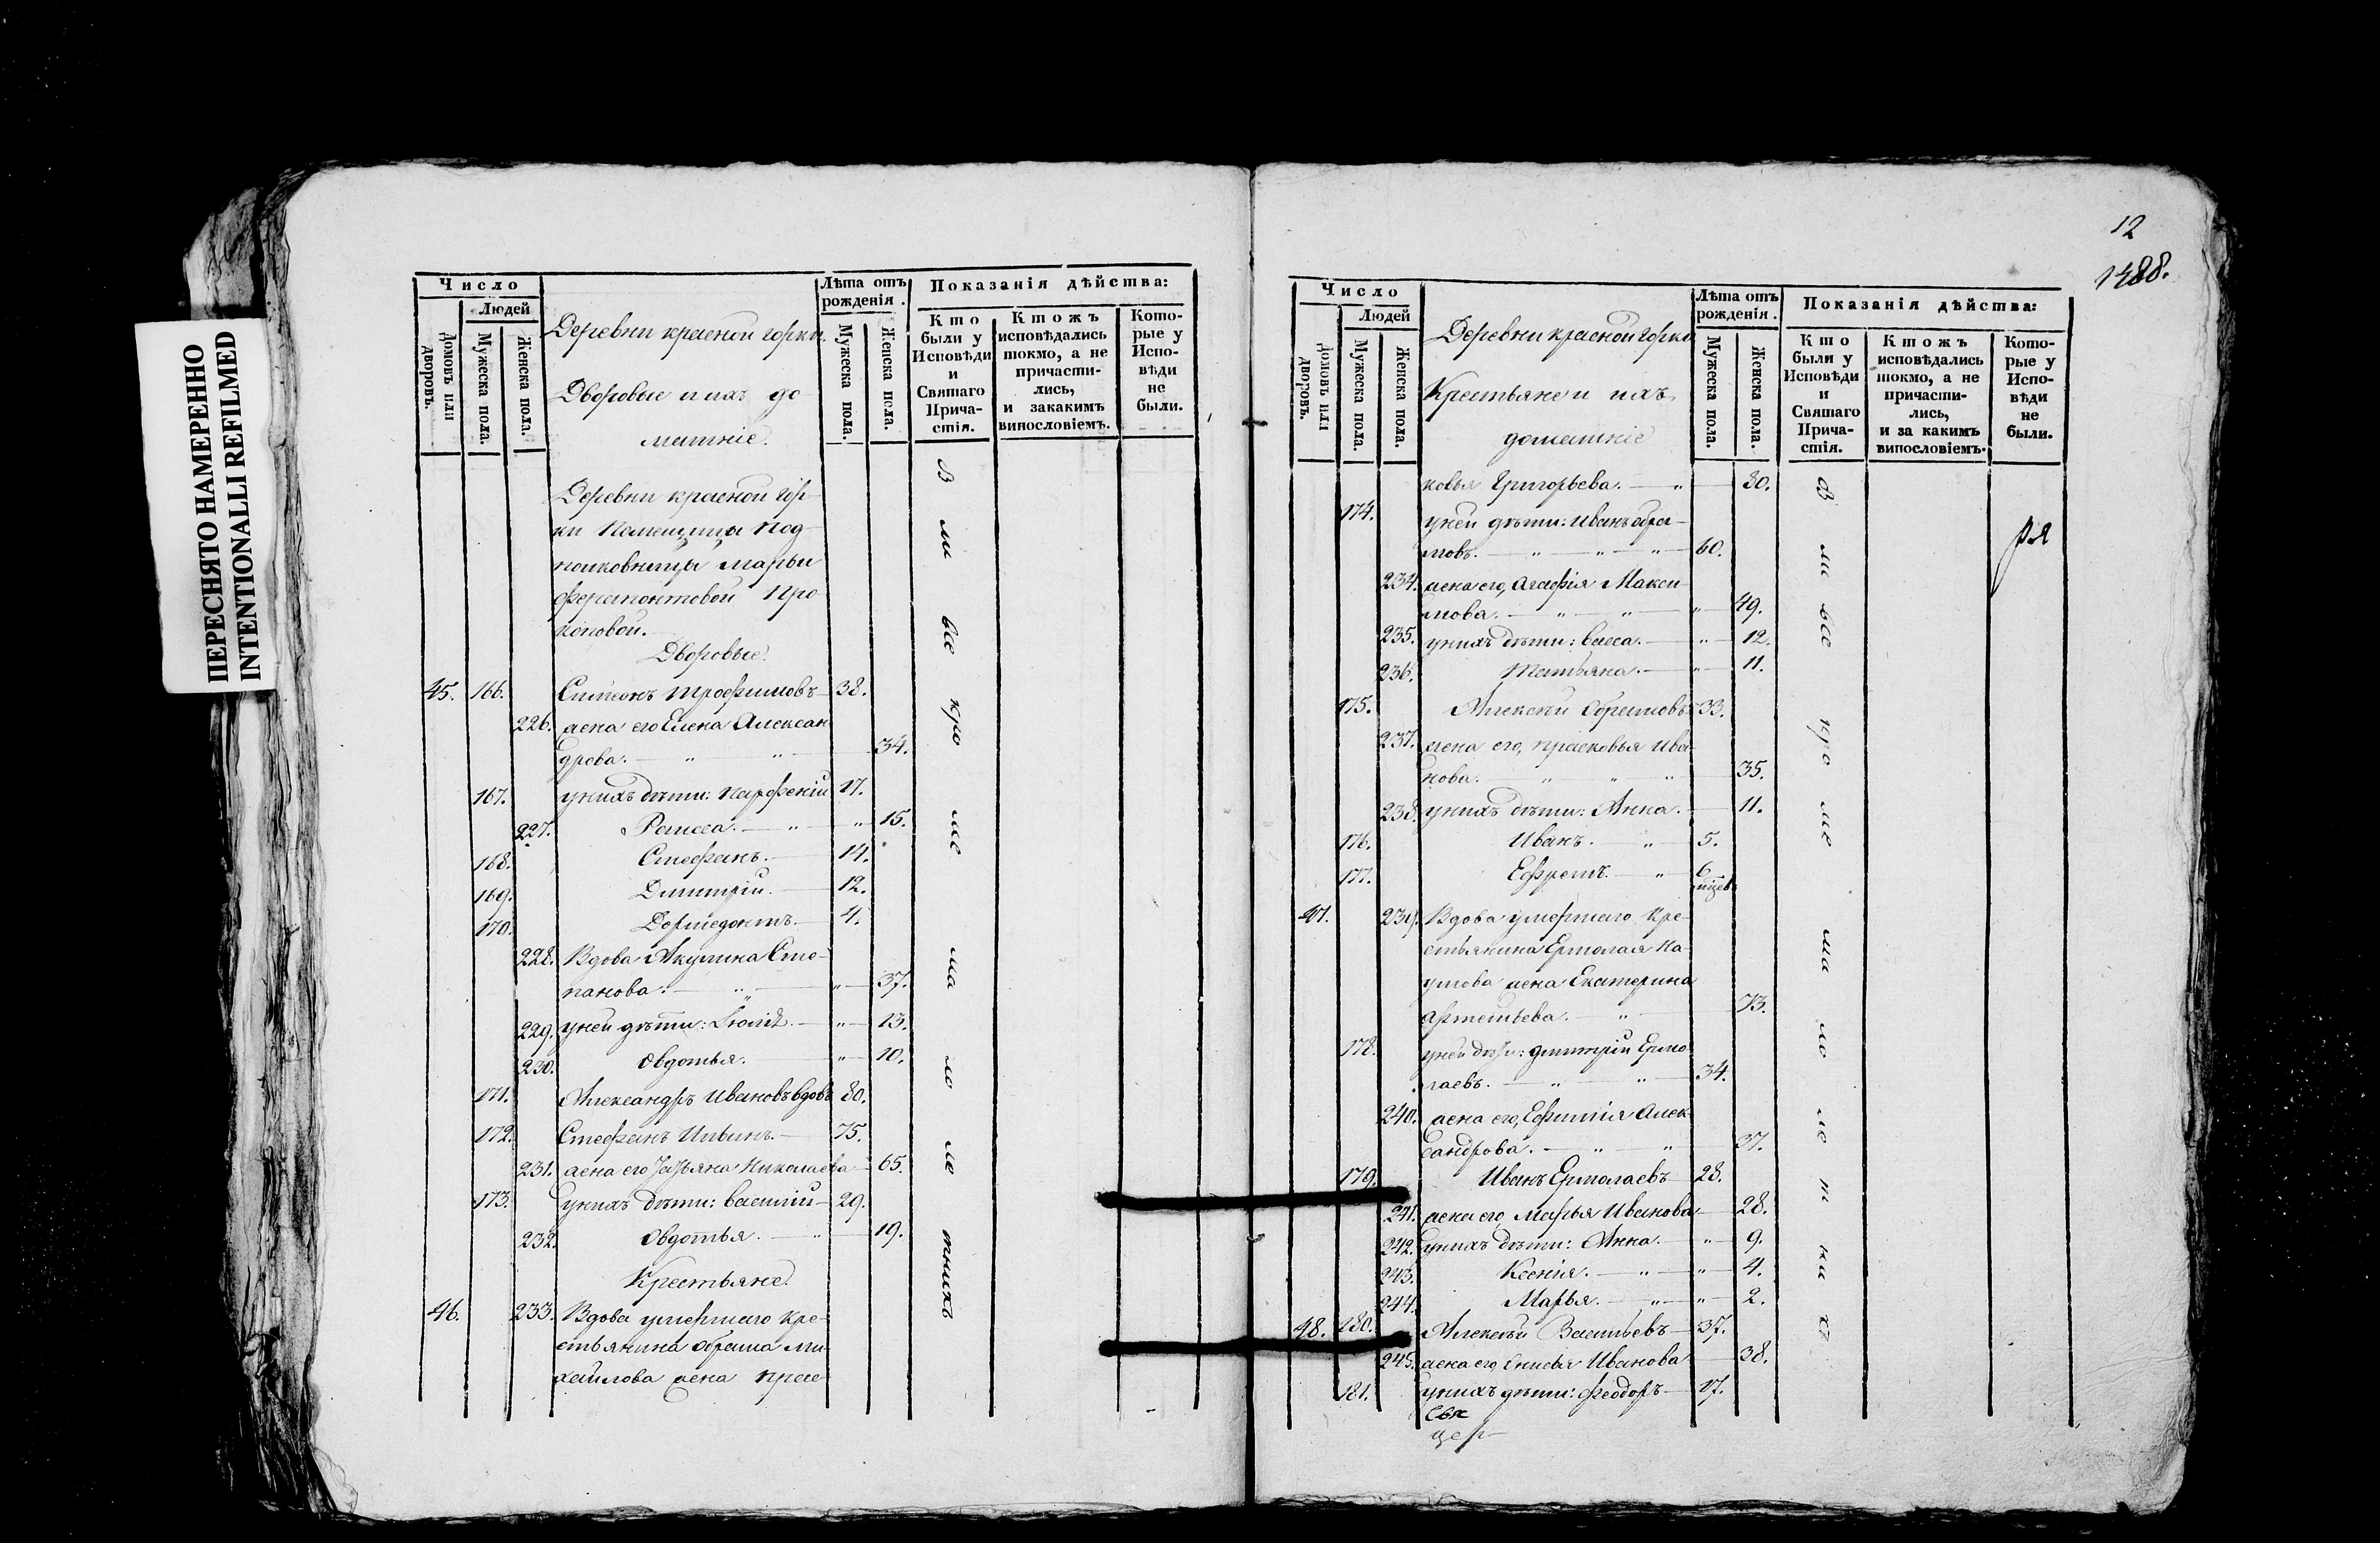 ПЕРЕСНЯТО НАМЕРЕННО
INTENTIONALLI REFILMED
Число
Людей
Домовъ или дворовъ.
Мужеска пола.
Женска пола.
Деревни красной горки.
Дворовые и ихъ до
машніе.
Лѣта отъ рожденія.
Мужеска пола.
Женска пола.
Показанія дѣйства:
Кто были у Исповѣди и Святаго Прича-стія.
Ктожъ исповѣдались токмо, а не причасти-лись, и закакимъ винословіемъ.
Кото-рые у Испо-вѣди не были.
Деревни красной гор-
ки Помещицы Под-
полковницы Марьи
Ферапонтовой Про-
коповой.
Дворовые.
45. 166. Симеонъ Трофимовъ 38.
226. жена его Елена Алексан
дрова. 34.
167. унихъ дѣти: Парфеній 17.
227. Раиса. 15.
168. Стефанъ. 14.
169. Дмитрій. 12.
170. Дормедонтъ. 4.
228. Вдова Акулина Сте-
панова. 37.
229. уней дѣти: 13.
230. Овдотья. 10.
171. Александръ Ивановъ вдовъ 80.
172. Стефанъ Ильинъ. 75.
231. жена его Татьяна Николаева 65.
173. унихъ дѣти: Василій 29.
232. Овдотья. 19.
Крестьяне.
46. 233. Вдова умершаго кре-
стьянина Обрама Ми-
хайлова жена Прас-
12
1488.
Число
Людей
Домовъ или дворовъ.
Мужеска пола.
Женска пола.
Деревни красной горки
Крестьяне и ихъ
домашніе
Лѣта отъ рожденія.
Мужеска пола.
Женска пола.
Показанія дѣйства:
Кто были у Исповѣди и Святаго Прича-стія.
Ктожъ исповѣдались токмо, а не причасти-лись, и за какимъ винословіемъ.
Кото-рые у Испо-вѣди не были.
ковья Григорьева. 80.
174. уней дѣти: Иванъ Обра-
мовъ. 60.
234. жена его, Агафія Макси-
мова. 49.
235. унихъ дѣти: Васса. 12.
236. Татьяна. 11.
175. Алексѣй Обрамовъ 33.
237. жена его, Прасковья Ива-
нова. 35.
238. унихъ дѣти: Анна. 11.
176. Иванъ. 5.
177. Ефремъ. 6
47. 239. Вдова умершаго Кре-
стьянина Ермолая На-
умова жена Екатерина
Артемьева. 73.
178. уней дѣти: Дмитрій Ермо-
лаевъ. 34.
240. жена его, Ефимія Алек-
сандрова. 37.
179. Иванъ Ермолаевъ 28.
241. жена его, Марья Иванова 28.
242. унихъ дѣти: Анна. 9.
243. Ксенія. 4.
244. Марья. 2.
48. 180. Алексѣй Васильевъ 37.
245. жена его, Иванова 38.
181. унихъ дѣти: Феодоръ 17.